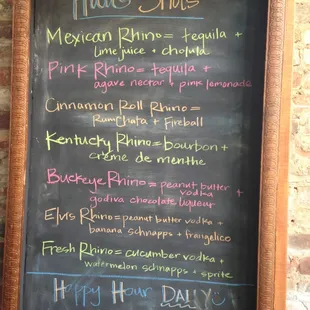 Shots
Mexican Rhino = tequila +
lime juice + cholula
Pink Rhino = tequila +
agave nectar + pink lemonade
Cinnamon Roll Rhino =
RumChata + Fireball
Kentucky Rhino = bourbon +
crème de menthe
Buckeye Rhino = peanut butter
vodka +
godiva chocolate liqueur
Elvis Rhino = peanut butter vodka +
banana schnapps + frangelico
Fresh Rhino = cucumber vodka +
watermelon schnapps + sprite
Happy Hour DAILY